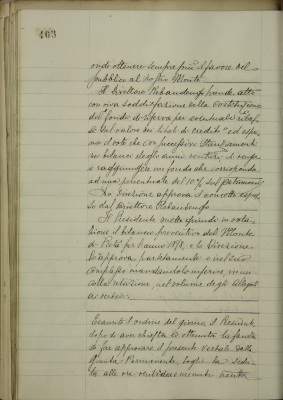 403
onde ottenere sempre più il favore del
pubblico al nostro Monte.
Il Direttore Rebaudengo prende atto
con viva soddisfazione della costituzione
del fondo di riserva per eventuale ribas-
so del valore dei titoli di credito ed espri-
me il voto che con successivi stanziamenti
nei bilanci degli anni venturi si venga
a raggiungere un fondo che corrisponda
ad una percentuale del 10% sul Patrimonio
La Direzione approva il concetto espres-
so dal Direttore Rebaudengo
Il Presidente mette quindi in vota-
zione il bilancio preventivo del Monte
di Pietà per l'anno 19 e la Direzione
lo approva partitamente e nel suo
complesso mandandolo inserire, in un
colla relazione, nel volume degli allegati
ai verbali.
Esaurito l'ordine del giorno il Presidente
dopo di aver chiesta e ottenuta la facoltà
di far approvare il presente verbale dalla
Giunta Permanente, toglie la sedu-
ta alle ore ventidue e minuti